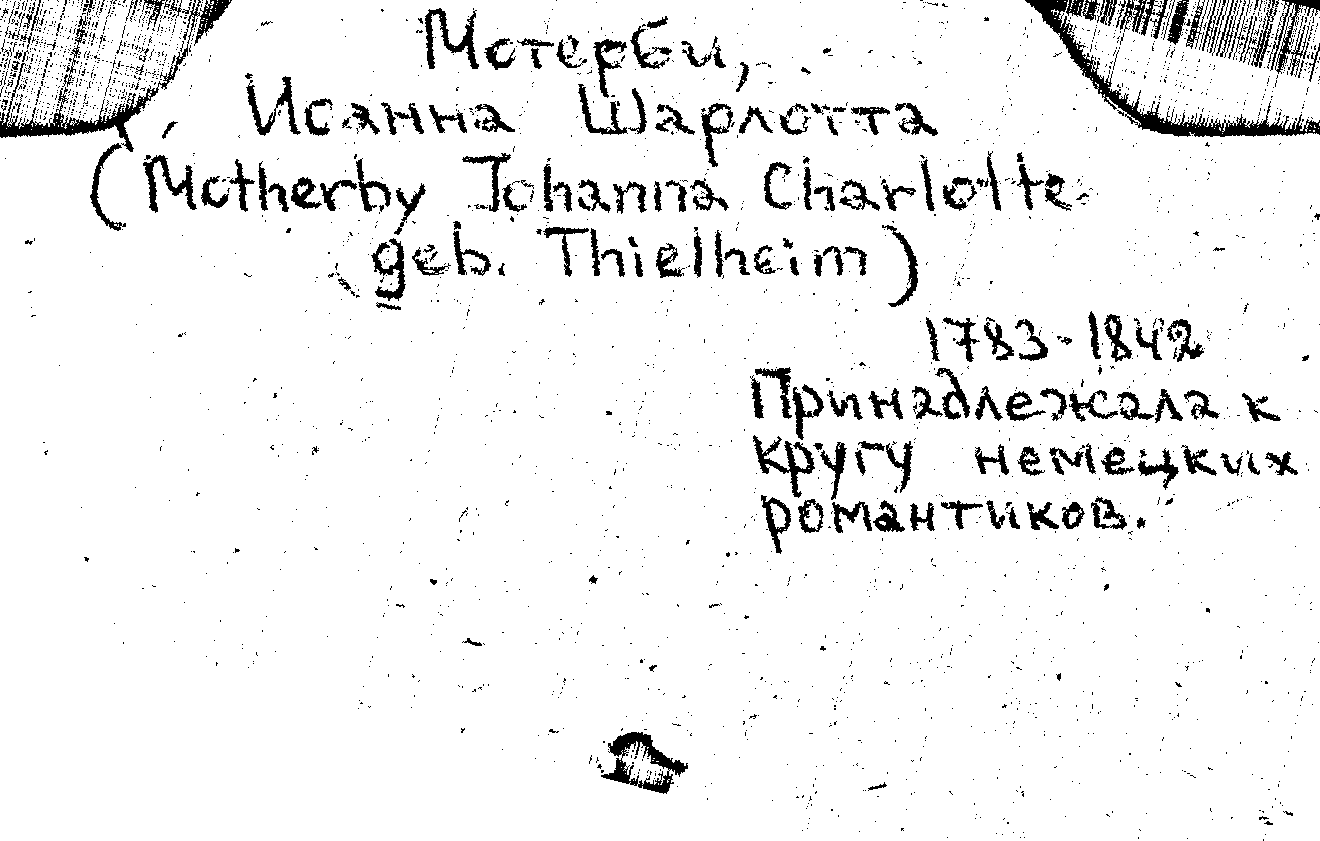 Мотерби,
Иоанна Шарлотта
(Motherby Johanna Charlotte
geb. Thielheim)
1783-1842
Принадлежала к
кругу немецких
романтиков.